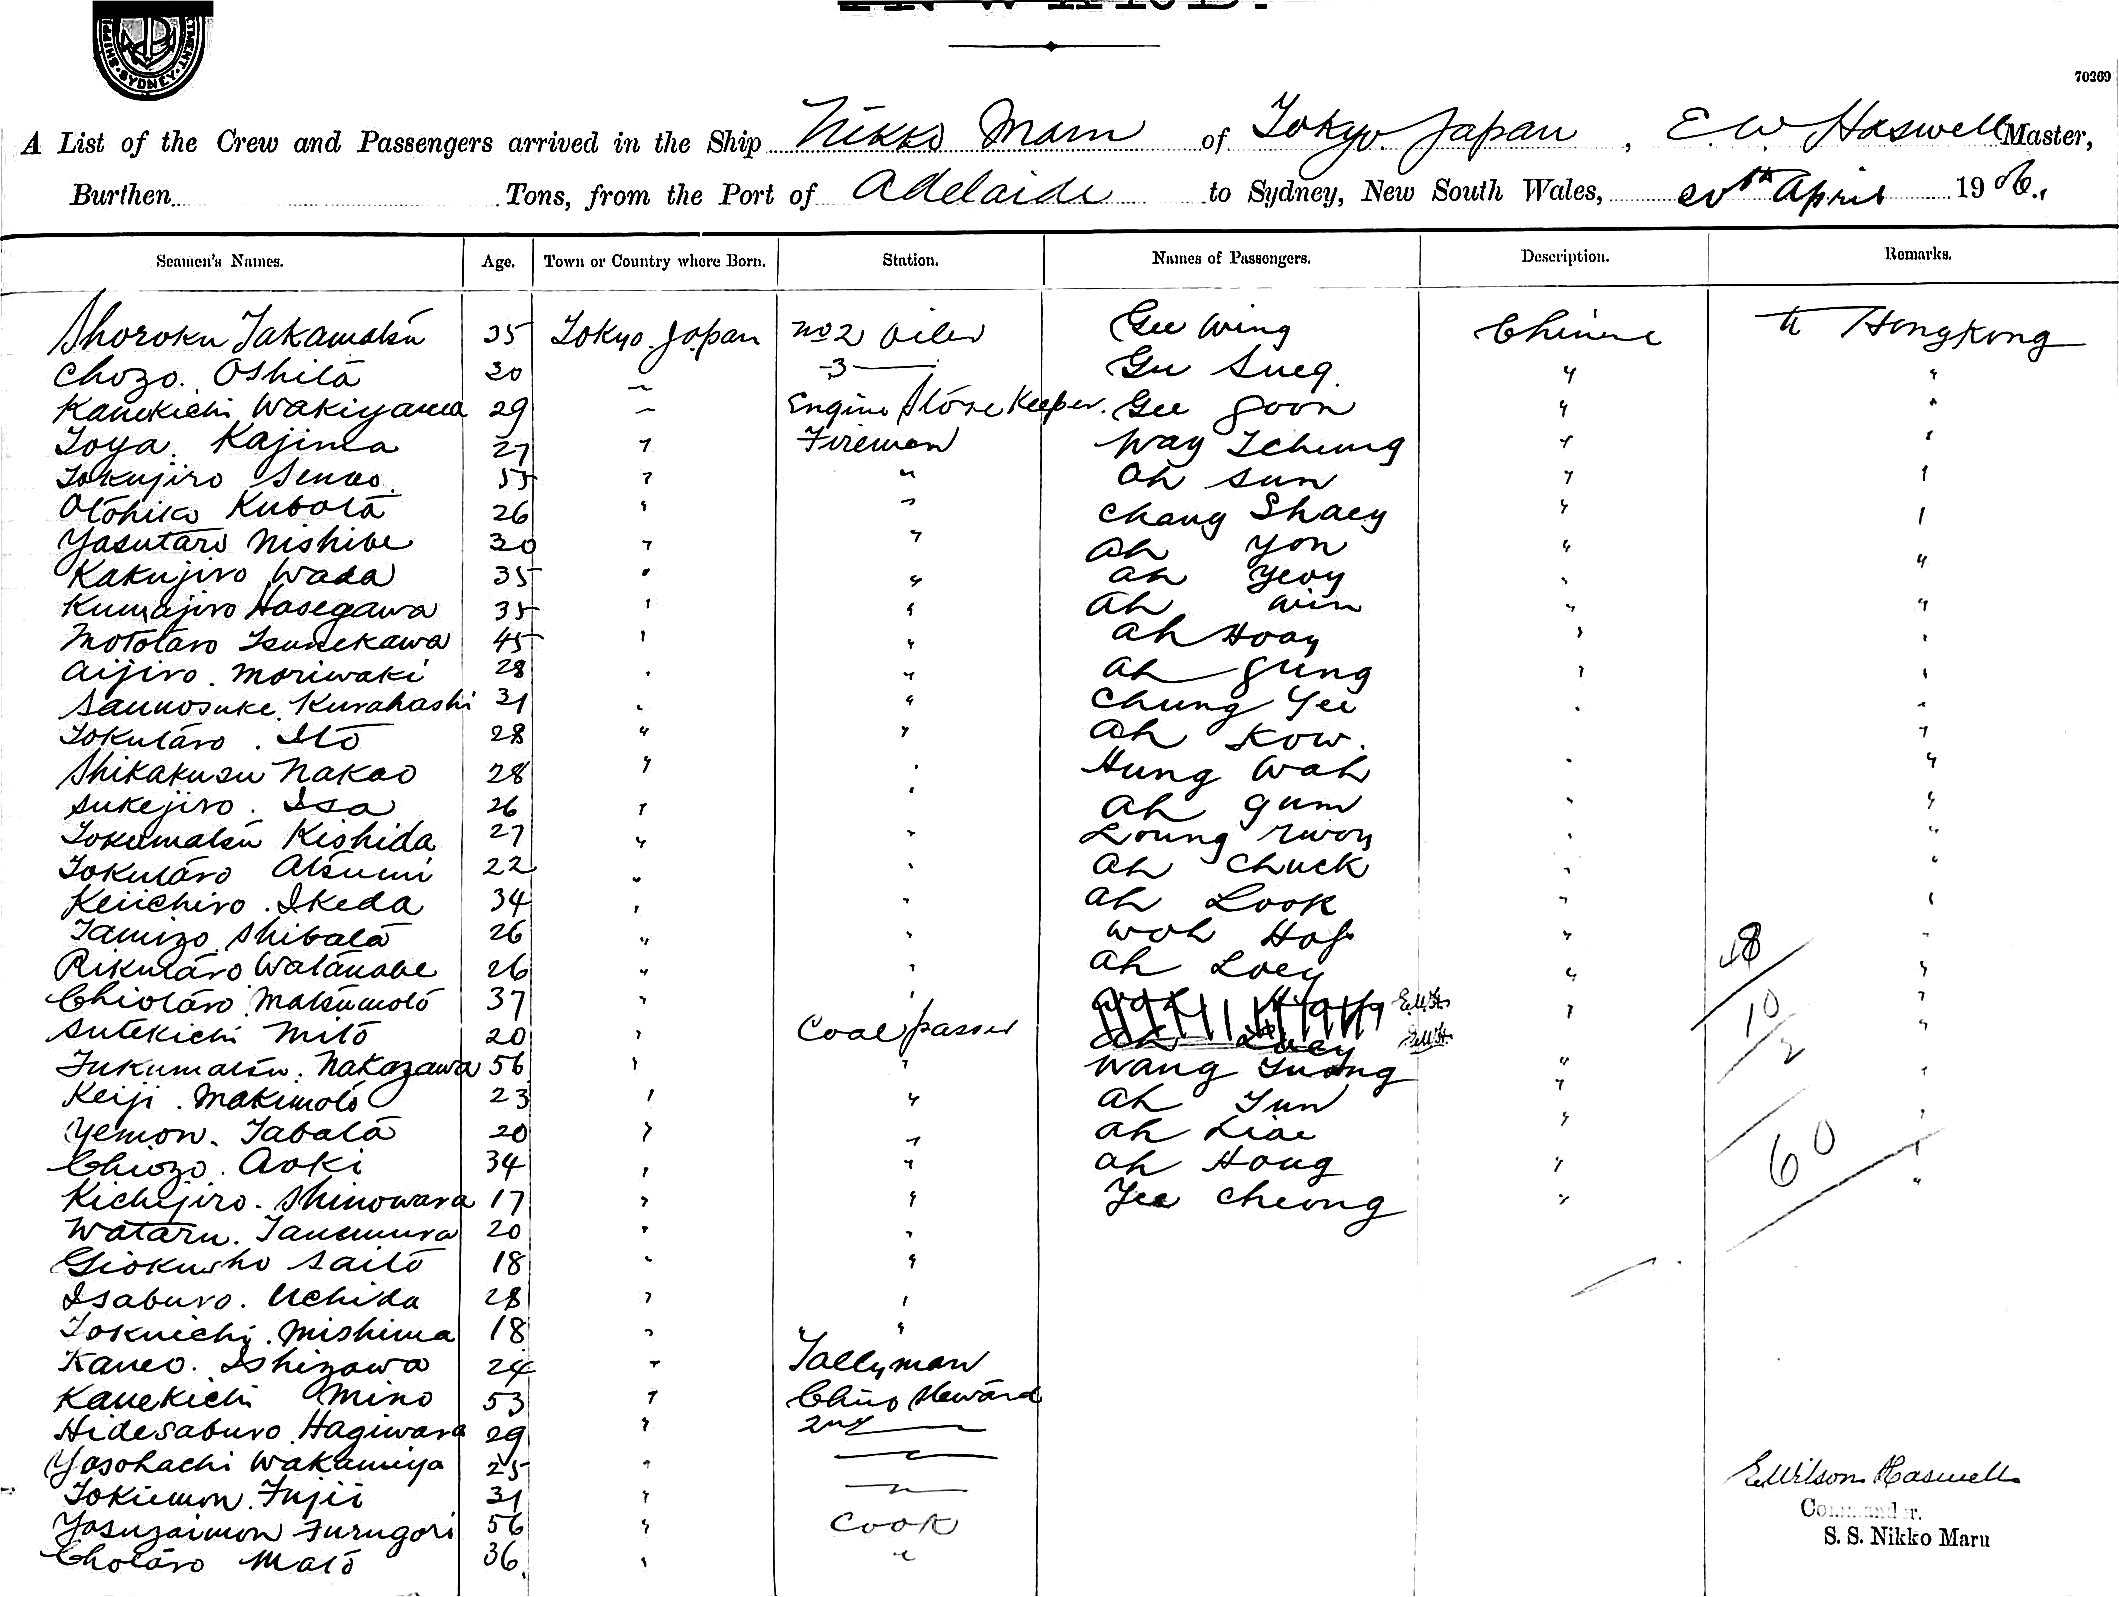 SYDNEY
70269
A List of the Crew and Passengers arrived in the Ship Nikko Maru of Tokyo Japan, E. W. Haswell Master,
Burthen Tons, from the Port of Adelaide to Sydney, New South Wales, 20th April 1906.
Seamen's Names. Age. Town or Country where Born. Station. Names of Passengers. Description. Remarks.
Shoroku Takamatsu 35 Tokyo. Japan No 2 Oiler Gee Wing Chinese to Hongkong
Chozo. Oshita 30 " 3 — Gee Sueg. " "
Kanekichi Wakiyama 29 " Engine Store Keeper. Gee Goon " "
Toya. Kajima 27 " Fireman Way Tcheung " "
Tokujiro Senao. 55 " " Ah Sun " "
Otohiko Kubota 26 " " Chang Shaey " "
Yasutaro Nishibe 30 " " Ah Yon "
Kakujiro Wada 35 " " Ah Yeoy " "
Kumajiro Hasegawa 35 " " Ah Win " "
Mototaro Tsunekawa 45 " " Ah Hoay " "
Aijiro. Moriwaki 28 " " Ah Gung " "
Sannosuke. Kurahashi 31 " " Chung Yee " "
Tokutaro. Ito 28 " " Ah Kow. "
Shikakusu Nakao 28 " " Hung Wah " "
Sukejiro. Isa 26 " " Ah Gum " "
Tokumatsu Kishida 27 " " Loung Kwoy " "
Tokutaro Atsumi 22 " " Ah Chuck " "
Keiichiro. Ikeda 34 " " Ah Look " "
Tamizo Shibata 26 " " Woh Hop " " 48
Rikutaro Watanabe 26 " " Ah Loey " "
Chiotaro Matsumoto 37 " " E.W.H. " 10 "
Sutekichi Mito 20 " Coal passer Ah Loey E.W.H. 2 "
Fukumatsu. Nakazawa 56 " " Wang Tuong " "
Keiji. Makimoto 23 " " Ah Yun "
Yemon. Tabata 20 " " Ah Liae " 60 "
Chiozo. Aoki 34 " " Ah Hong " "
Kichijiro. Shinowara 17 " " Yee Cheong " "
Wataru. Tanemura 20 " "
Giokusho Saito 18 " "
Isaburo. Uchida 28 " "
Tokuichi. Mishima 18 " "
Kaneo. Ishizawa 24 " Tallyman
Kanekichi Mino 53 " Chief Steward
Hidesaburo Hagiwara 29 " 2nd —
Yasohachi Wakamiya 25 " — " —
Tokiemon. Fujii 31 " — " —
Yasuzaimon Furugori 56 " Cook
Chotaro Mato 36. " "
E. Wilson Haswell
Commander.
S. S. Nikko Maru